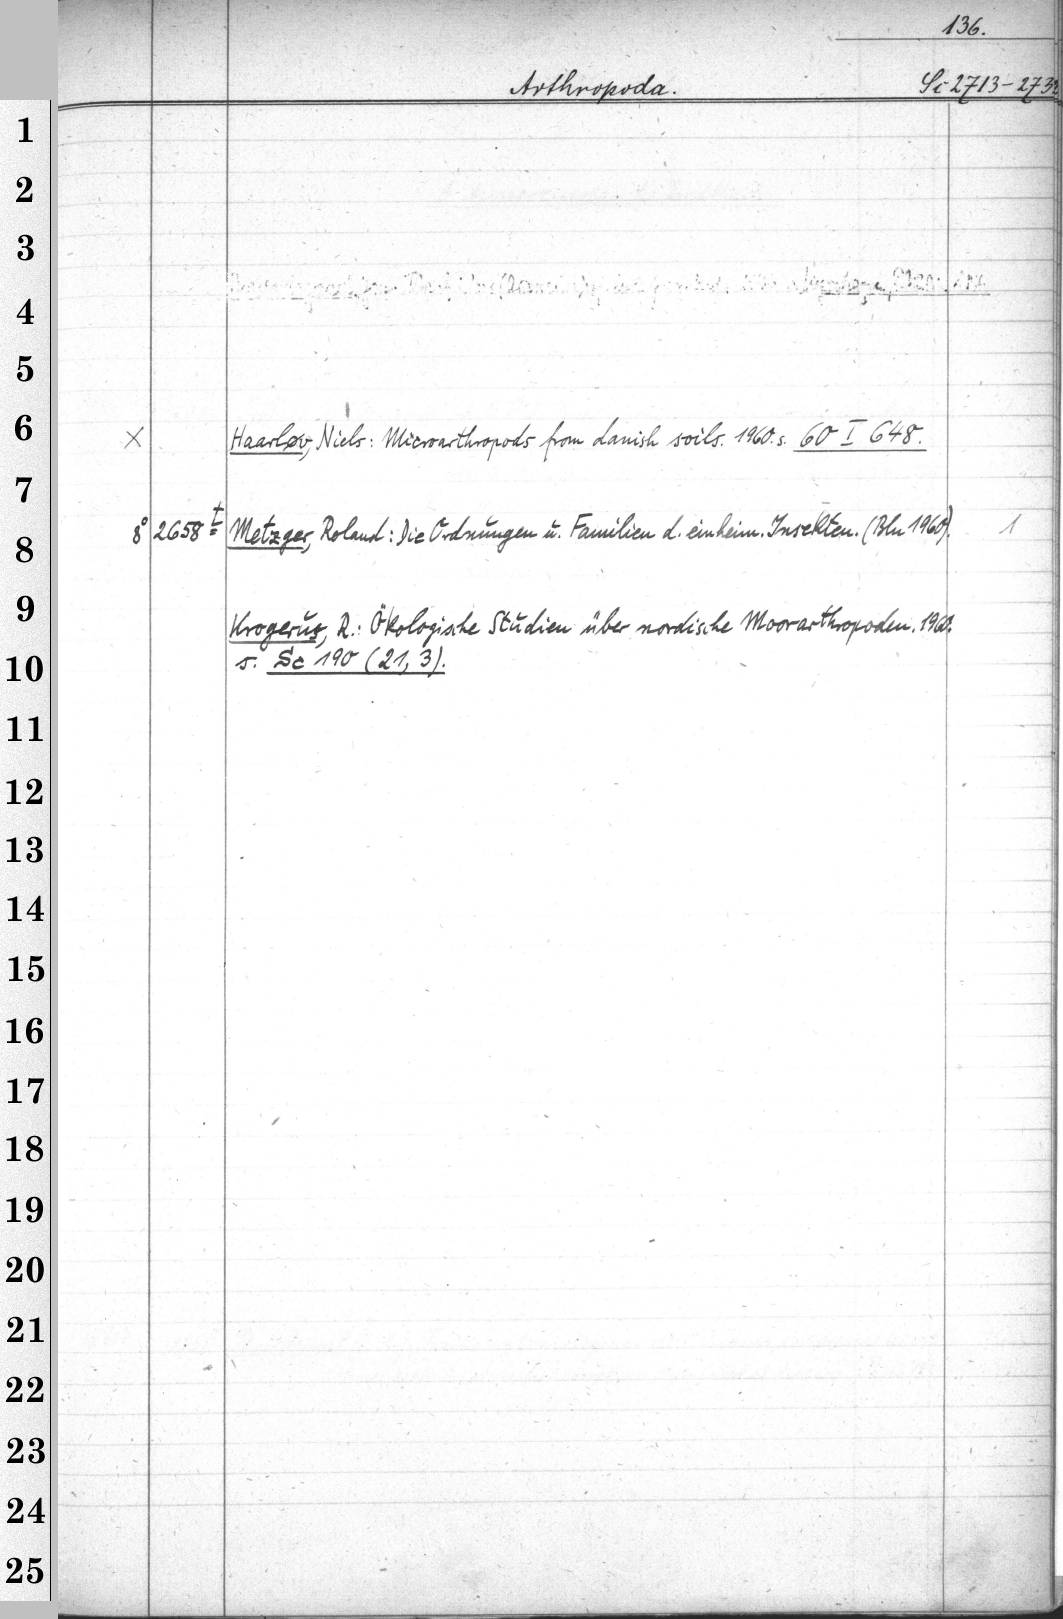 136.
Arthropoda. Sc 2713-273
1
2
3
4
5
6
× Haarløv, Niels: Microarthropods from danish soils. 1960. s. 60 I 648.
7
8° 2658 t Metzger, Roland: Die Ordnungen u. Familien d. einheim. Insekten. (Bln 1960). 1
8
9
Krogerus, R.: Ökologische Studien über nordische Moorarthropoden. 1960.
s. Sc 190 (21, 3).
10
11
12
13
14
15
16
17
18
19
20
21
22
23
24
25